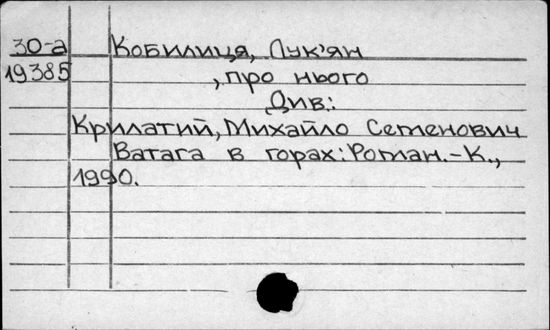 30-а Кобилиця, Лук'ян
19385 , про нього
Див.:
Крилатий, Михайло Семенович
Ватага в горах: Роман.-К.,
1990.